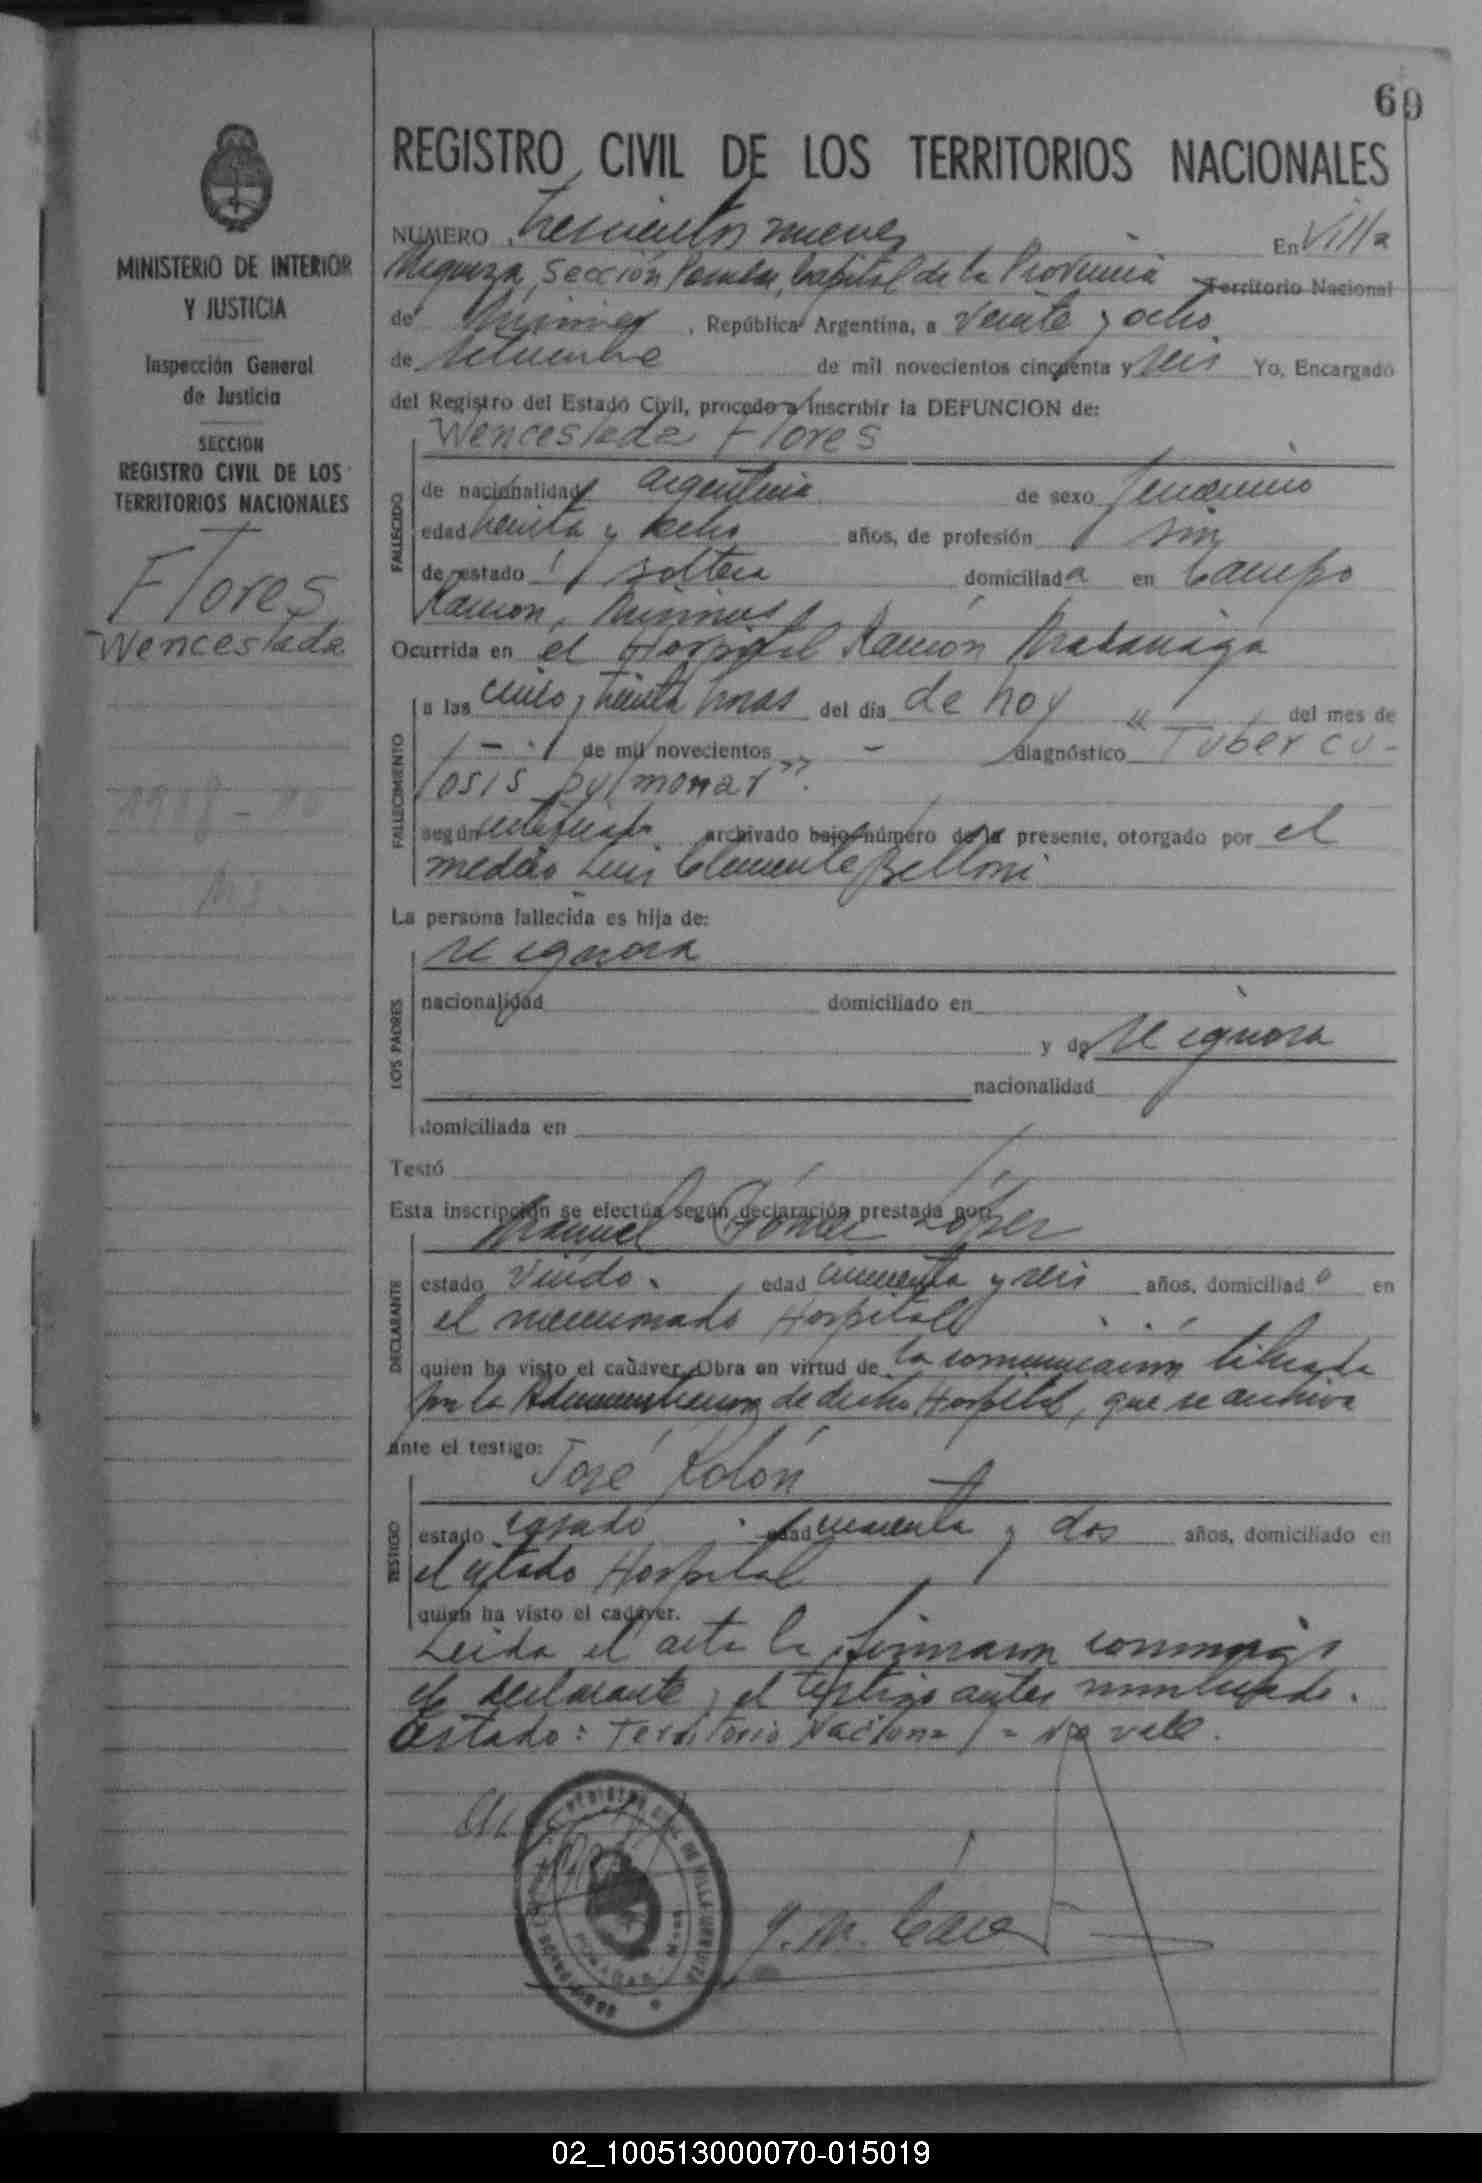 69
REGISTRO CIVIL DE LOS TERRITORIOS NACIONALES
MINISTERIO DE INTERIOR
Y JUSTICIA
Inspección General
de Justicia
SECCION
REGISTRO CIVIL DE LOS
TERRITORIOS NACIONALES
Flores
Wenceslada
NUMERO trescientos nueve En Villa
Sección Capital de la Provincia Territorio Nacional
de Misiones, República Argentina, a veinte y ocho
de setiembre de mil novecientos cincuenta y seis Yo, Encargado
del Registro del Estado Civil, procedo a inscribir la DEFUNCION de:
Wenceslada Flores
FALLECIDO
de nacionalidad argentina de sexo femenino
edad treinta y ocho años, de profesión sin
de estado soltera domiciliada en Campo
Ramón, Misiones
Ocurrida en el Hospital Ramón Madariaga
FALLECIMIENTO
a las cinco y treinta horas del día de hoy " — del mes de
— de mil novecientos — diagnóstico Tubercu-
losis pulmonar".
según certificado archivado bajo número de la presente, otorgado por el
medico Luis Clemente Belloni
La persona fallecida es hija de:
LOS PADRES
se ignora
nacionalidad domiciliado en
y de se ignora
nacionalidad
domiciliada en
Testó
Esta inscripción se efectúa según declaración prestada por:
DECLARANTE
Manuel Gómez López
estado viudo edad cincuenta y seis años, domiciliado en
el mencionado Hospital
quien ha visto el cadáver. Obra en virtud de la comunicación librada
por la Administracion de dicho Hospital, que se archiva
ante el testigo:
TESTIGO
José Rolón
estado casado edad cuarenta y dos años, domiciliado en
el citado Hospital
quien ha visto el cadáver.
Leida el acta la firmaron conmigo
el declarante y el testigo antes nombrado.
Testado: Territorio Nacional = No vale.
02_100513000070-015019